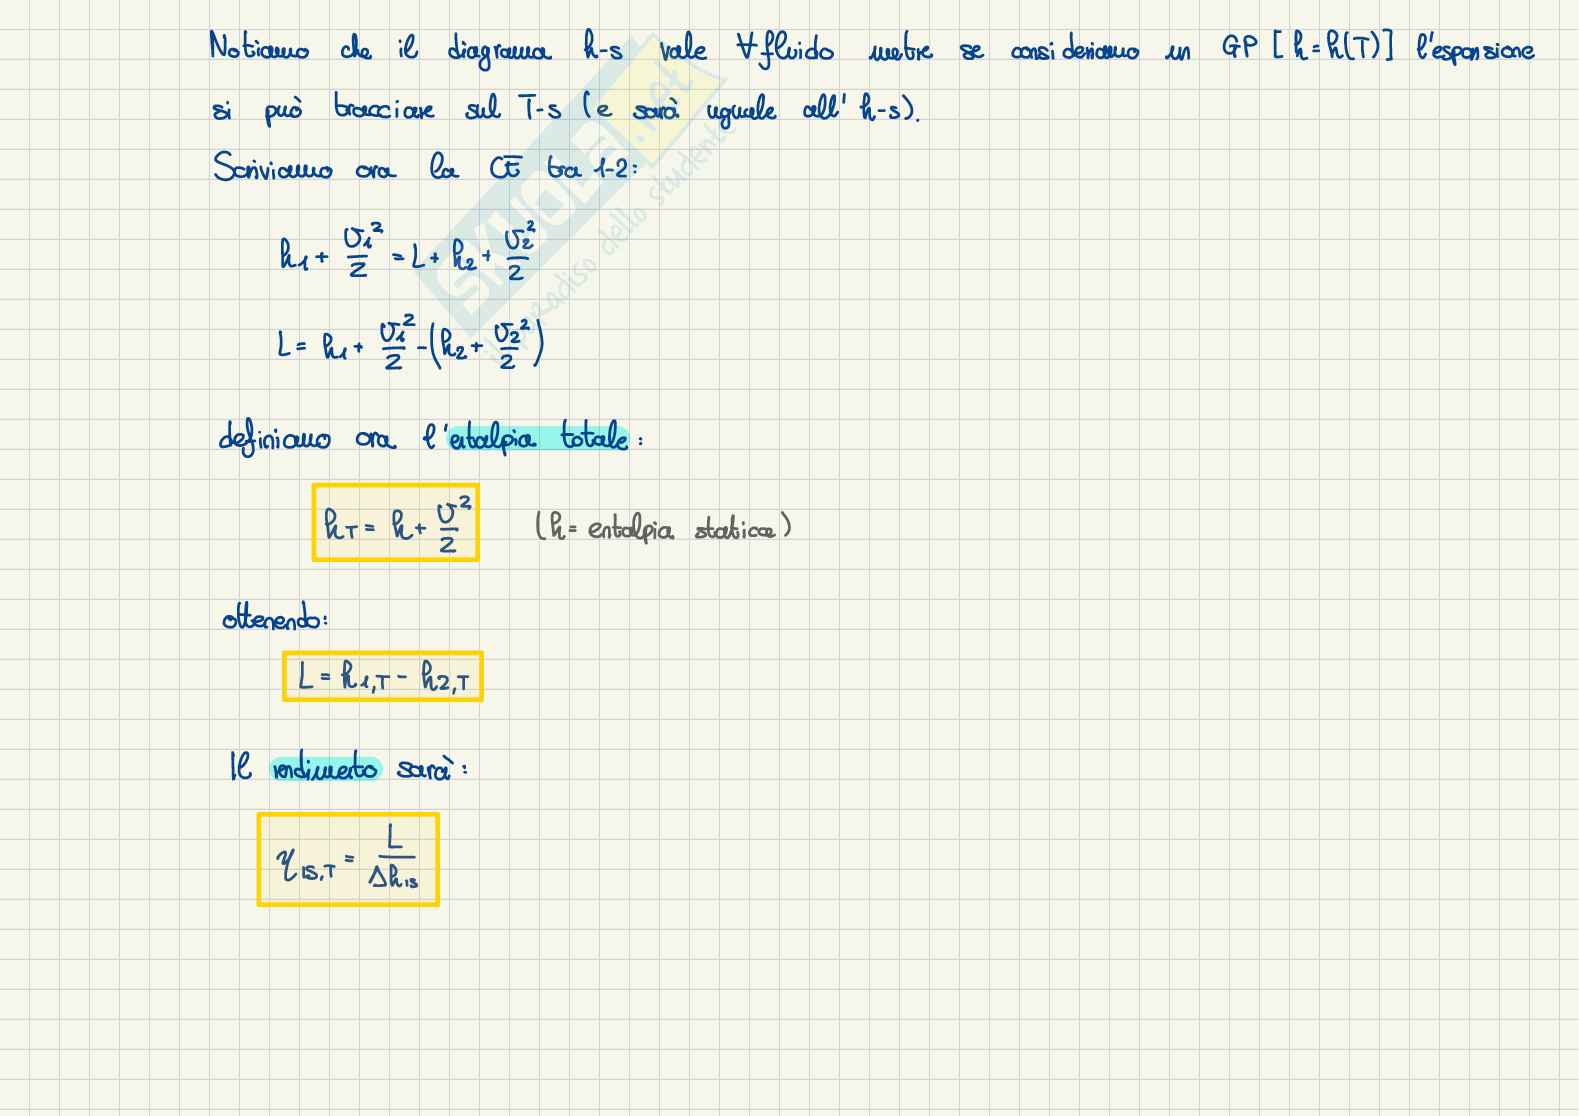 Notiamo che il diagrama h-s vale ∀fluido metre se consideriamo un GP [h=h(T)] l'espansione
si può tracciare sul T-s (e sarà uguale all' h-s).
Scriviamo ora la CE tra 1-2:
h₁ + v₁²/2 = L + h₂ + v₂²/2
L = h₁ + v₁²/2 - (h₂ + v₂²/2)
definiamo ora l'entalpia totale:
h_T = h + v²/2 (h = entalpia statica)
ottenendo:
L = h₁,T - h₂,T
Il rendimento sarà:
η_is,T = L/Δh_is
SKUOLA.net
il paradiso dello studente